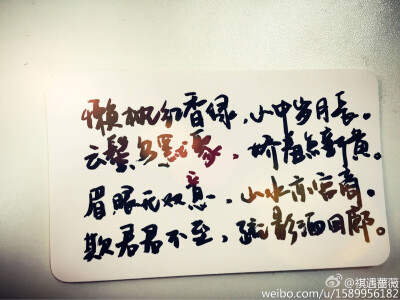 懒香绿，山中岁月长。
云鬓乌墨，娇点新黄。
眉眼无双意，山水亦宫商。
欺君君不至，疏影洒回廊。
@祺遇蔷薇
weibo.com/u/1589956182